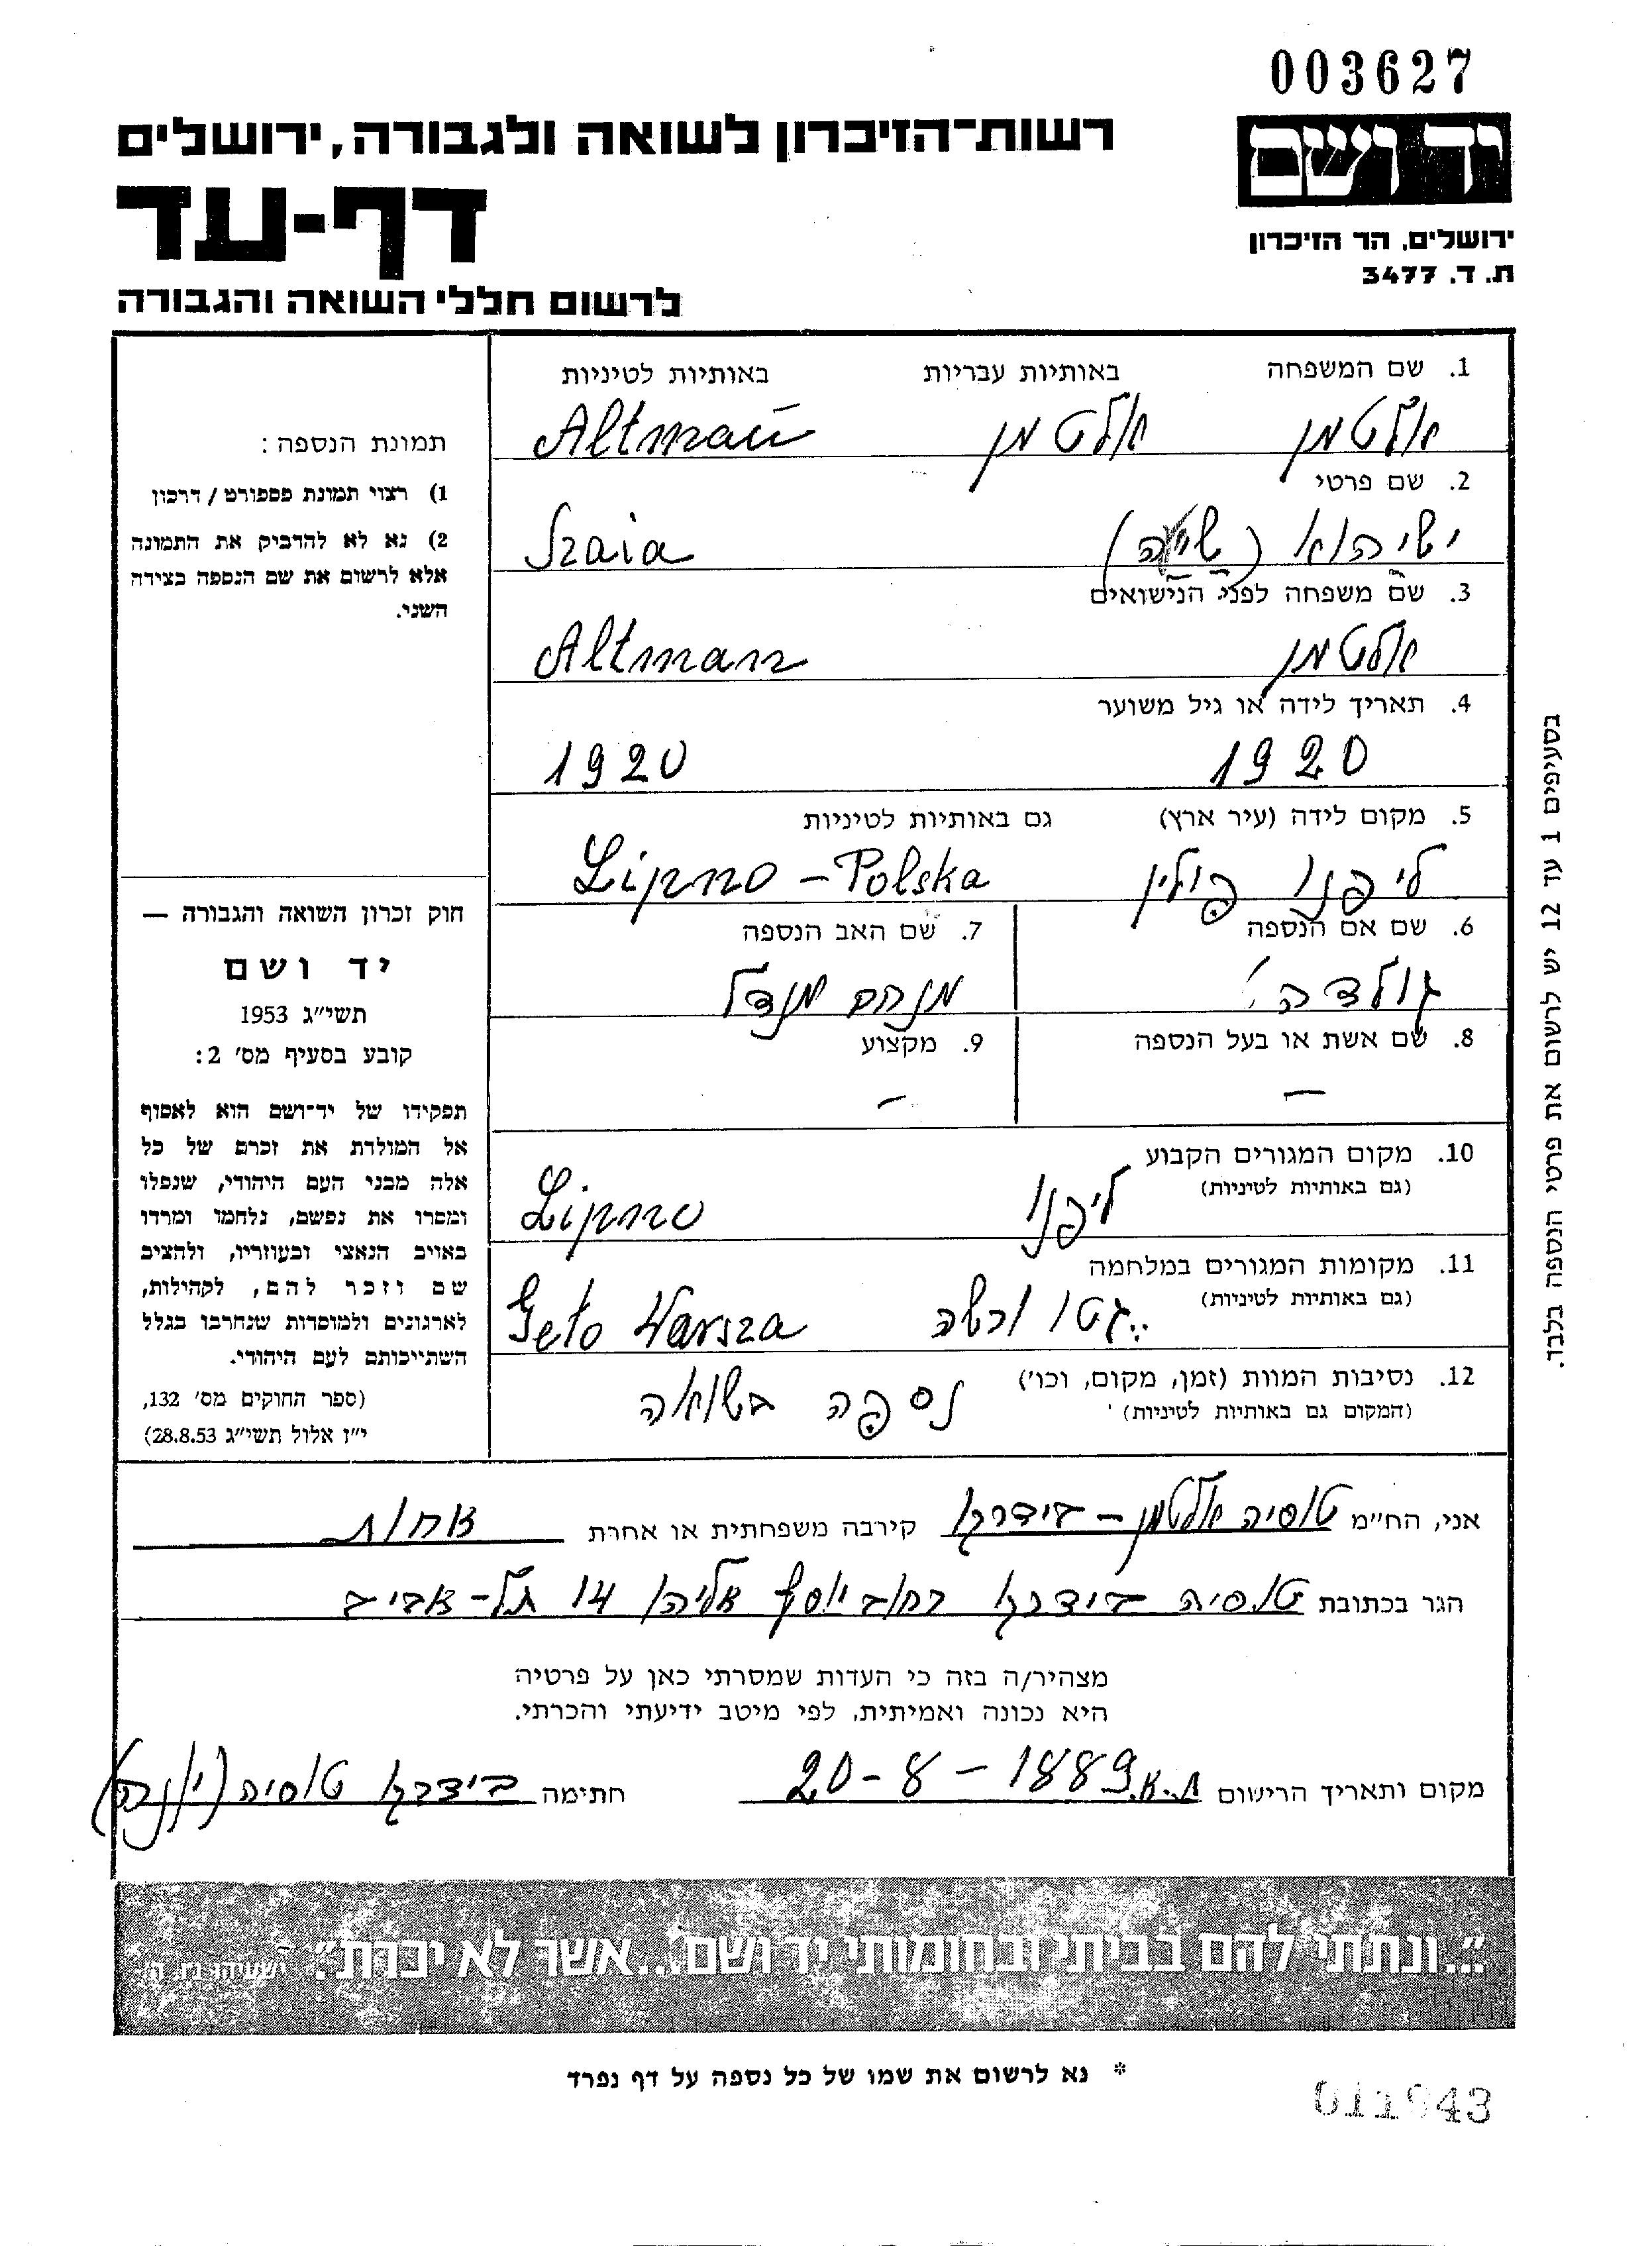 003627
יד ושם
רשות־הזיכרון לשואה ולגבורה, ירושלים
דף-עד
ירושלים, הר הזיכרון
ת. ד. 3477
לרשום חללי השואה והגבורה
1. שם המשפחה באותיות עבריות באותיות לטיניות
אלטמן אלטמן Altman
2. שם פרטי
ישיהוא (שייה) Szaia
3. שם משפחה לפני הנישואים
אלטמן Altman
4. תאריך לידה או גיל משוער
1920 1920
5. מקום לידה (עיר ארץ) גם באותיות לטיניות
ליפנו פולין Lipno - Polska
6. שם אם הנספה 7. שם האב הנספה
גולדה מנחם מנדל
8. שם אשת או בעל הנספה 9. מקצוע
— —
10. מקום המגורים הקבוע
(גם באותיות לטיניות)
ליפנו Lipno
11. מקומות המגורים במלחמה
(גם באותיות לטיניות)
גטו ורשה Geto Warsza
12. נסיבות המוות (זמן, מקום, וכו')
(המקום גם באותיות לטיניות)
נספה בשואה
תמונת הנספה:
1) רצוי תמונת פספורט / דרכון
2) נא לא להדביק את התמונה
אלא לרשום את שם הנספה בצידה
השני.
חוק זכרון השואה והגבורה —
יד ושם
תשי"ג 1953
קובע בסעיף מס' 2:
תפקידו של יד־ושם הוא לאסוף
אל המולדת את זכרם של כל
אלה מבני העם היהודי, שנפלו
ומסרו את נפשם, נלחמו ומרדו
באויב הנאצי ובעוזריו, ולהציב
שם וזכר להם, לקהילות,
לארגונים ולמוסדות שנחרבו בגלל
השתייכותם לעם היהודי.
(ספר החוקים מס' 132,
י"ז אלול תשי"ג 28.8.53)
בסעיפים 1 עד 12 יש לרשום את פרטי הנספה בלבד.
אני, הח"מ טוסיה אלטמן - קירבה משפחתית או אחרת אחות
הגר בכתובת טוסיה רחוב יוסף אליהו 14 תל-אביב
מצהיר/ה בזה כי העדות שמסרתי כאן על פרטיה
היא נכונה ואמיתית, לפי מיטב ידיעתי והכרתי.
מקום ותאריך הרישום ת.א. 20-8-1989 חתימה טוסיה
"...ונתתי להם בביתי ובחומותי יד ושם...אשר לא יכרת". ישעיהו נו, ה
* נא לרשום את שמו של כל נספה על דף נפרד